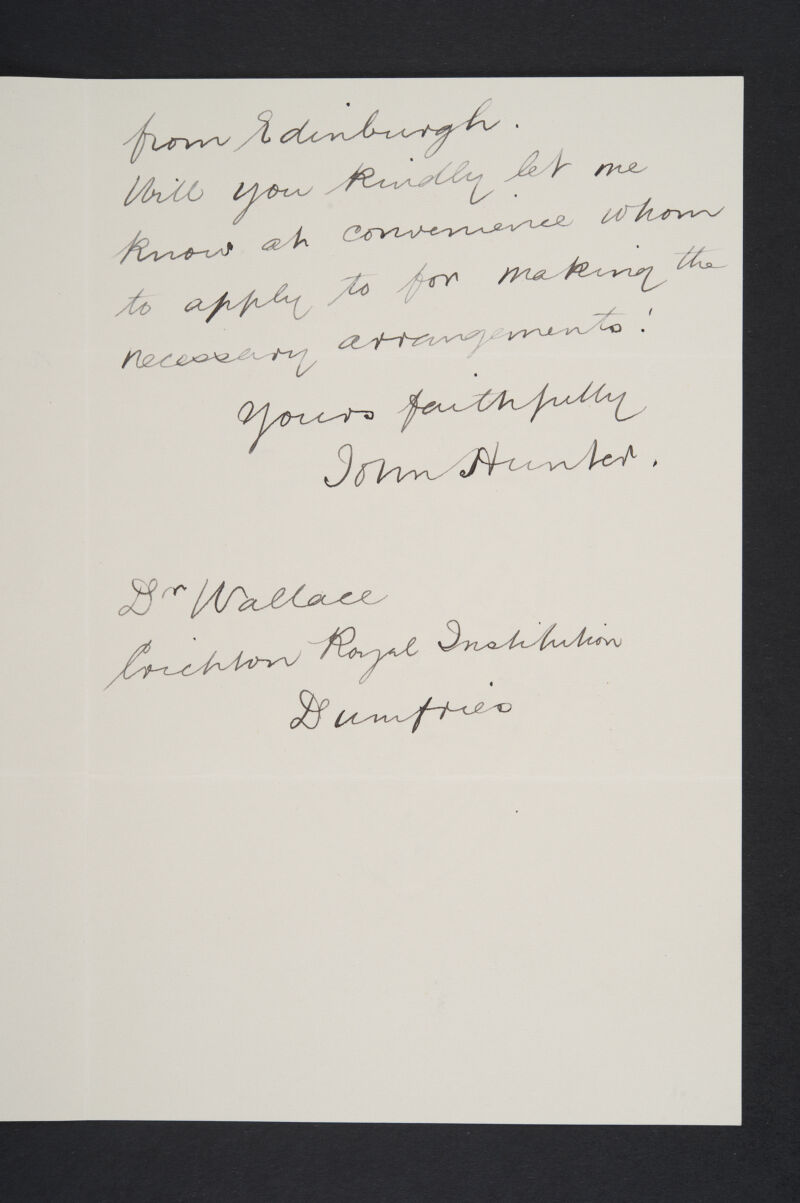 from Edinburgh.
Will you kindly let me
know at convenience whom
to apply to for making the
necessary arrangements!
Yours faithfully
John Hunter.
Dr Wallace
Crichton Royal Institution
Dumfries